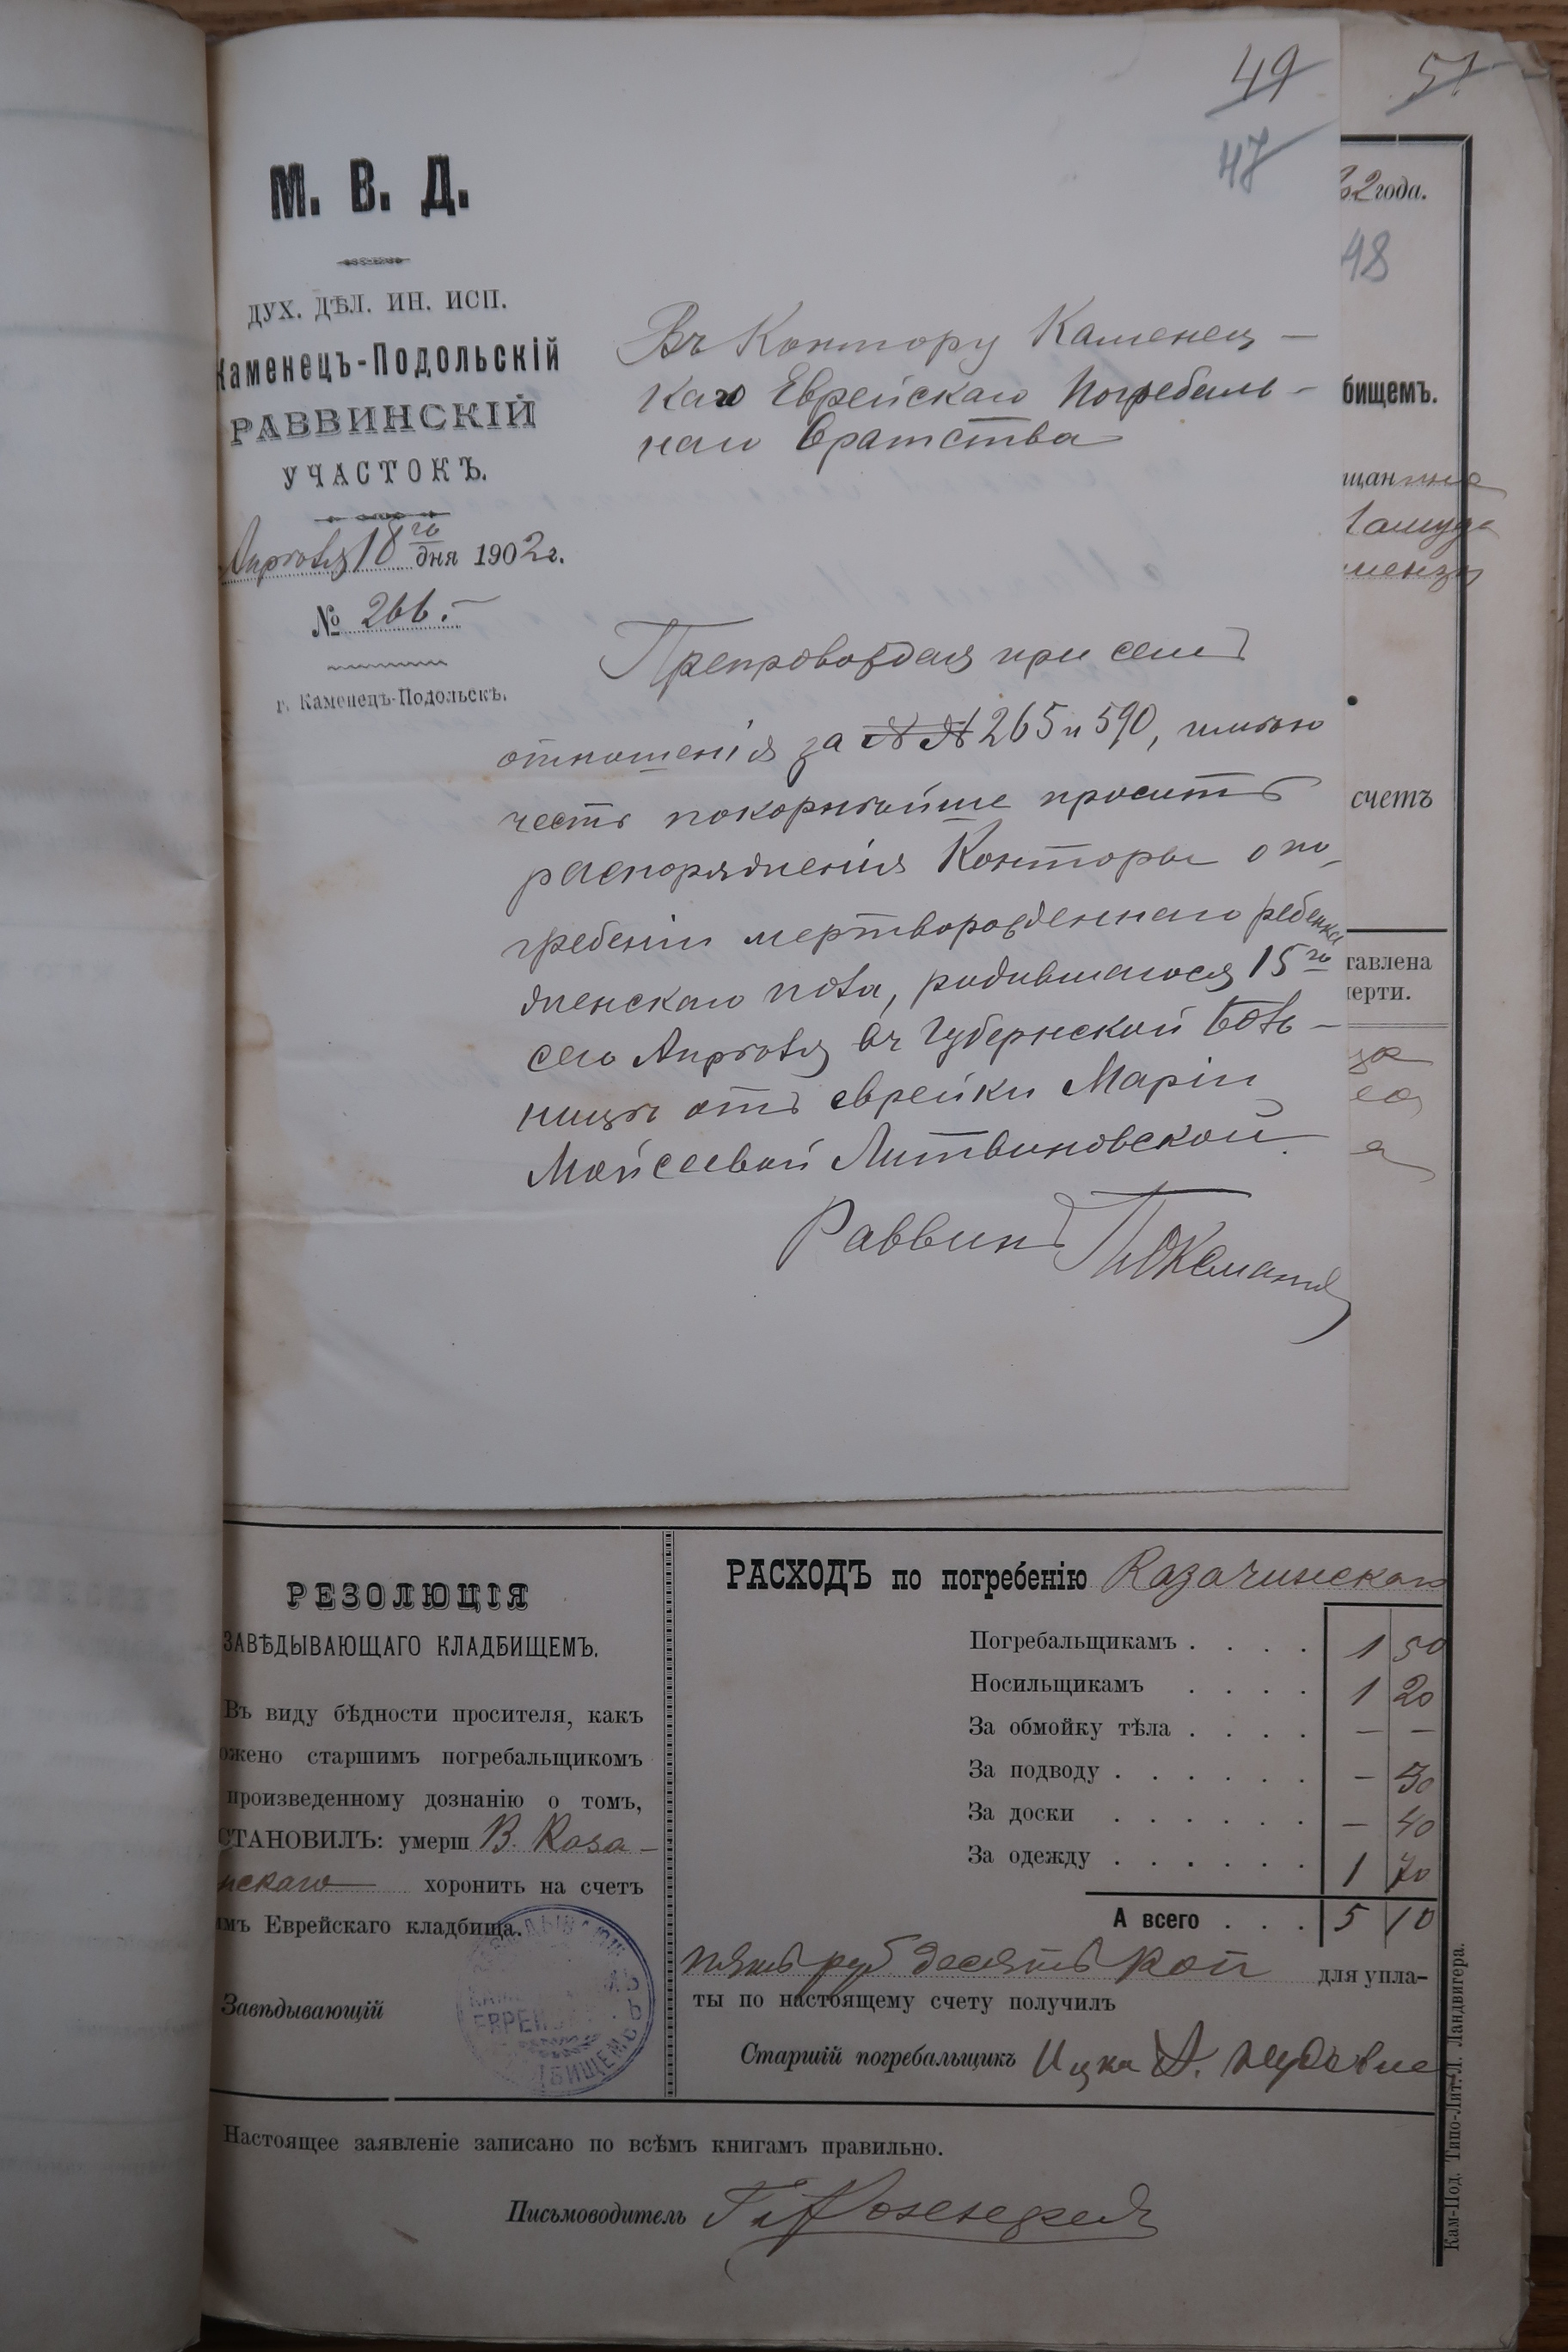 49
47
М. В. Д.
ДУХ. ДѢЛ. ИН. ИСП.
Каменецъ-Подольскій
РАВВИНСКІЙ
УЧАСТОКЪ.
Апрѣля 18го дня 1902 г.
№ 266.
г. Каменецъ-Подольскъ.
Въ Контору Каменец-
каго Еврейскаго Погребаль-
наго Братства
Препровождая при семъ
отношенія за №№ 265 и 590, имѣю
честь покорнѣйше просить
распоряженія Конторы о по-
гребеніи мертворожденнаго ребенка
женскаго пола, родившагося 15го
сего Апрѣля въ Губернской Боль-
ницѣ отъ еврейки Маріи
Мойсеевой Литвиновской.
Раввинъ
51
02 года.
48
бищемъ.
щанина
счетъ
тавлена
мерти.
РЕЗОЛЮЦІЯ
ЗАВѢДЫВАЮЩАГО КЛАДБИЩЕМЪ.
Въ виду бѣдности просителя, какъ
ожено старшимъ погребальщикомъ
произведенному дознанію о томъ,
СТАНОВИЛЪ: умерш В. Каза-
нскаго хоронить на счетъ
имъ Еврейскаго кладбища.
Завѣдывающій
РАСХОДЪ по погребенію Казачинскаго
Погребальщикамъ . . . . 1 50
Носильщикамъ . . . . 1 20
За обмойку тѣла . . . . — —
За подводу . . . . . . — 30
За доски . . . . . . — 40
За одежду . . . . . . 1 70
А всего . . . 5 10
пять руб десять коп для упла-
ты по настоящему счету получилъ
Старшій погребальщикъ Ицка
Настоящее заявленіе записано по всѣмъ книгамъ правильно.
Письмоводитель
Кам-Под. Типо-Лит. Л. Ландвигера.